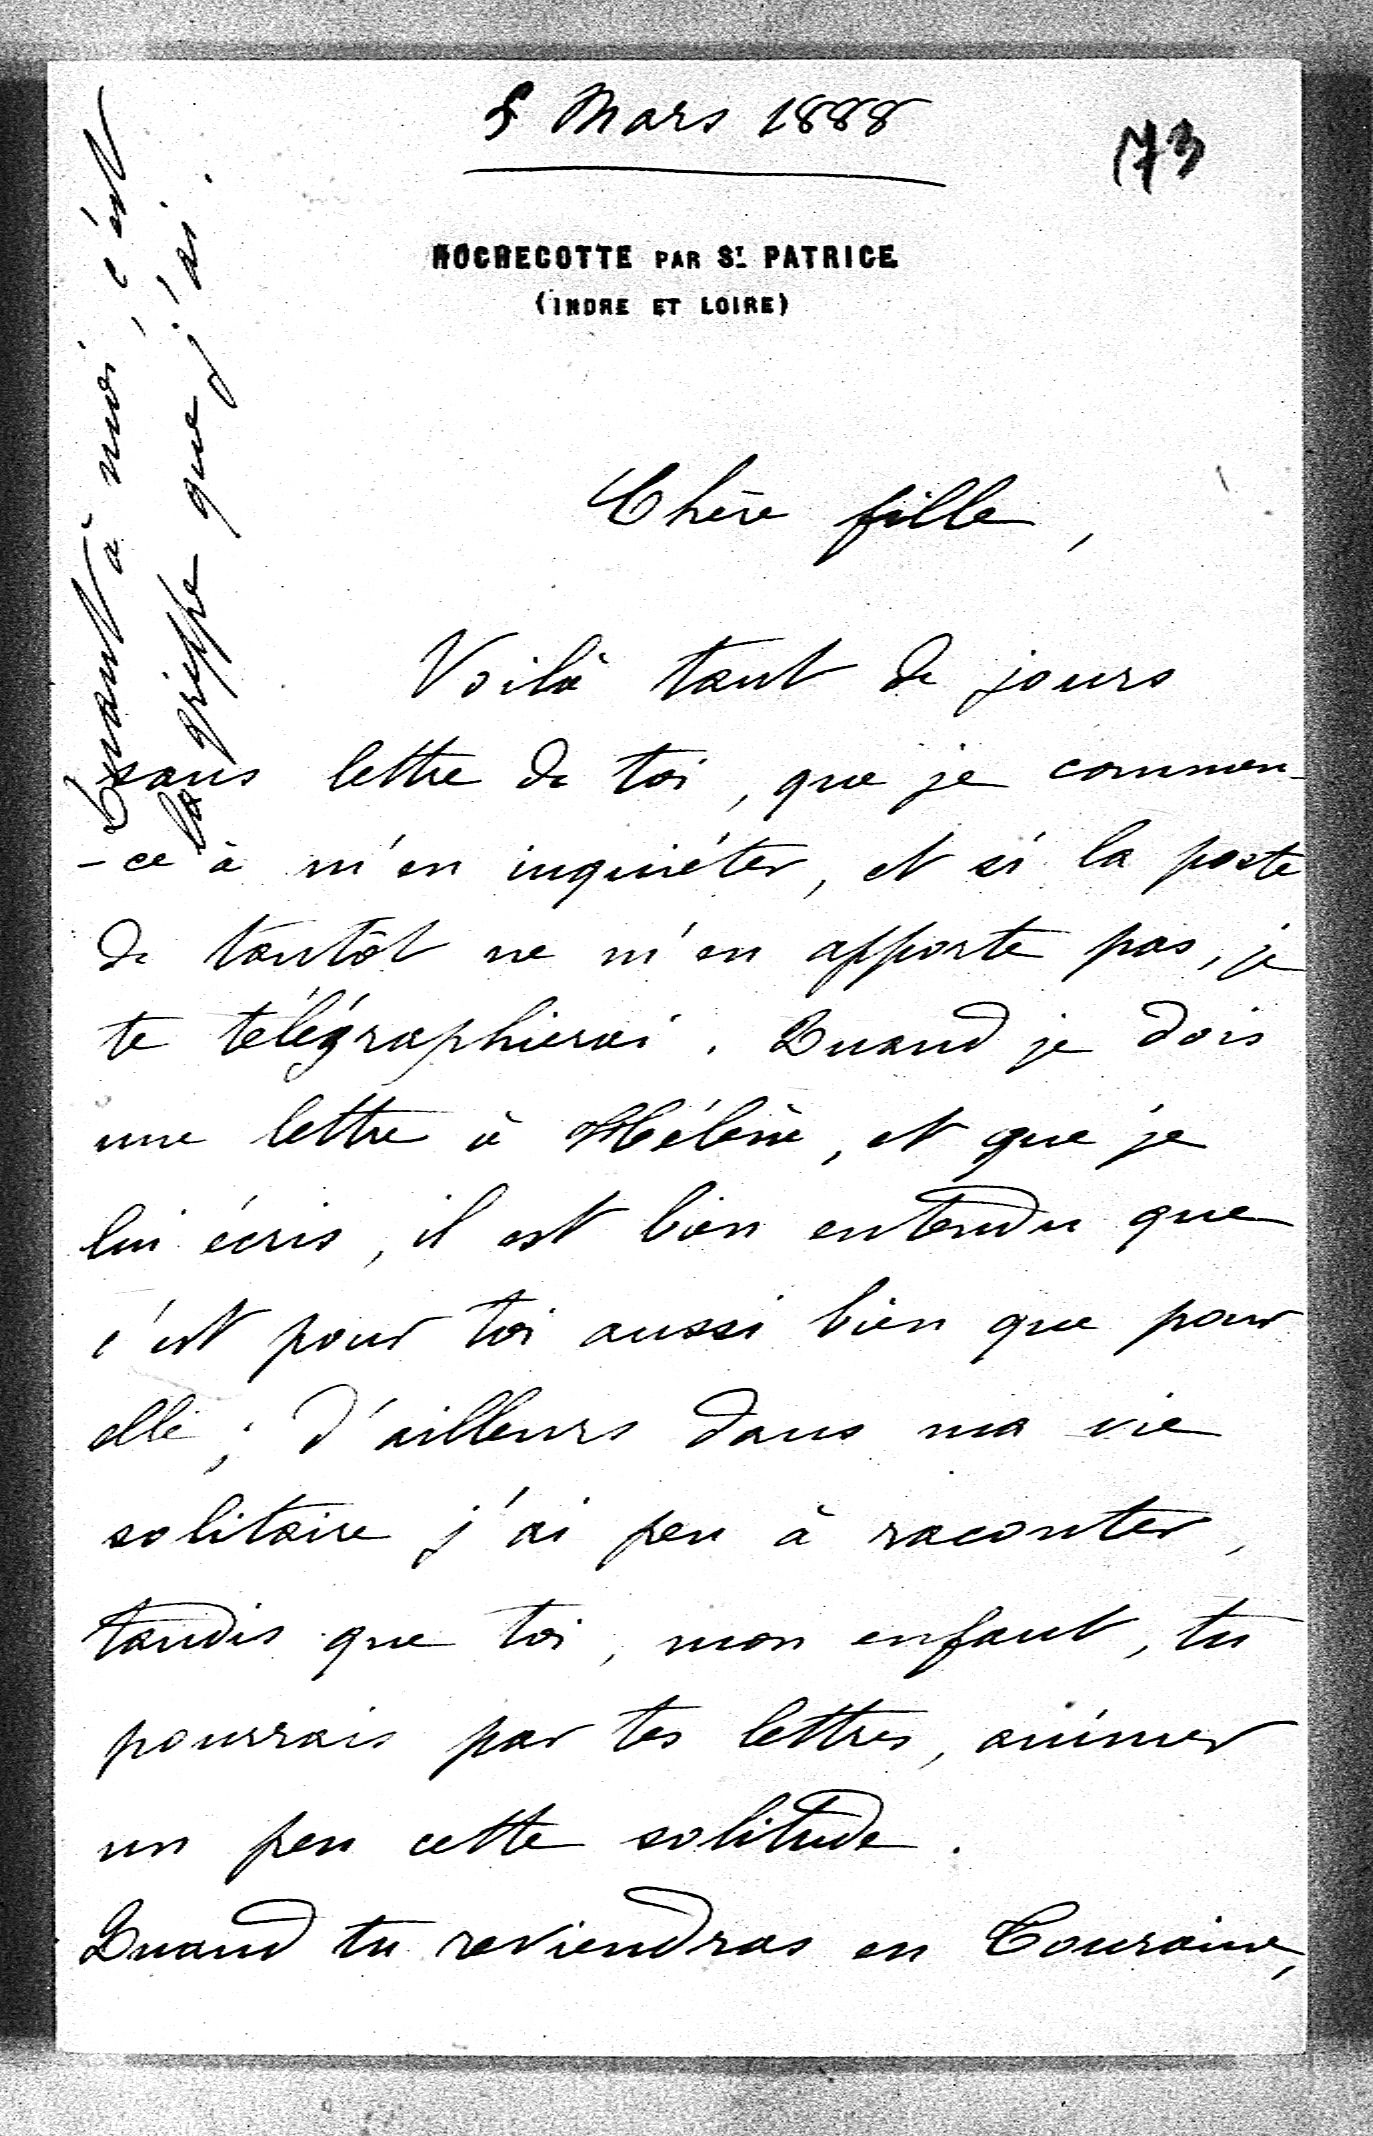 5 Mars 1888
73
ROCHECOTTE PAR ST. PATRICE
(INDRE ET LOIRE)
Chère fille,
Voilà tant de jours
sans lettre de toi, que je commen-
-ce à m'en inquiéter, et si la poste
de tantôt ne m'en apporte pas, je
te télégraphierai. Quand je dois
une lettre à Hélène, et que je
lui écris, il est bien entendu que
c'est pour toi aussi bien que pour
elle; d'ailleurs dans ma vie
solitaire j'ai peu à raconter,
tandis que toi, mon enfant, tu
pourrais par tes lettres, animer
un peu cette solitude.
Quand tu reviendras en Touraine,
Quant à moi, c'est
la grippe que j'ai.